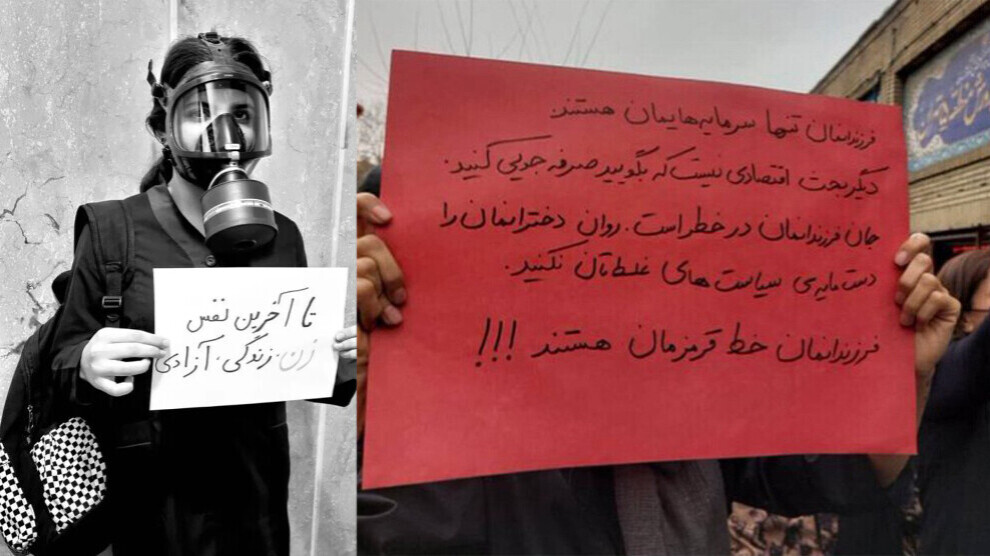 تا آخرین نفس
زن. زندگی. آزادی
فرزندانمان تنها سرمایه‌هایمان هستند.
دیگر بحث اقتصادی نیست که بگویید صرفه جویی کنید.
جان فرزندانمان در خطر است. روان دخترانمان را
دست مایه‌ی سیاست های غلطتان نکنید.
فرزندانمان خط قرمزمان هستند !!!